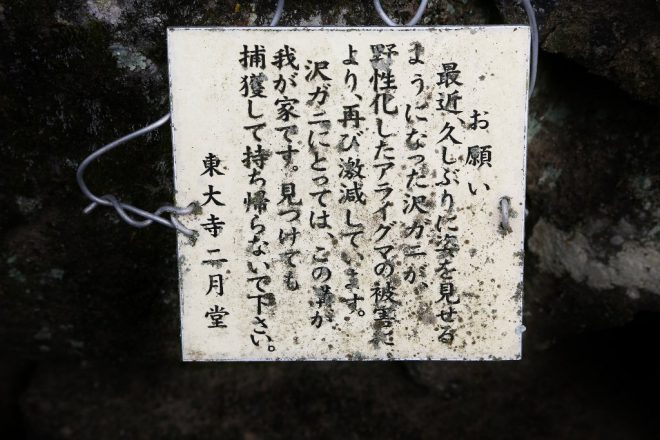 お願い
最近、久しぶりに姿を見せる
ようになった沢ガニが、
野性化したアライグマの被害に
より、再び激減しています。
沢ガニにとっては、この溝が
我が家です。見つけても
捕獲して持ち帰らないで下さい。
東大寺二月堂